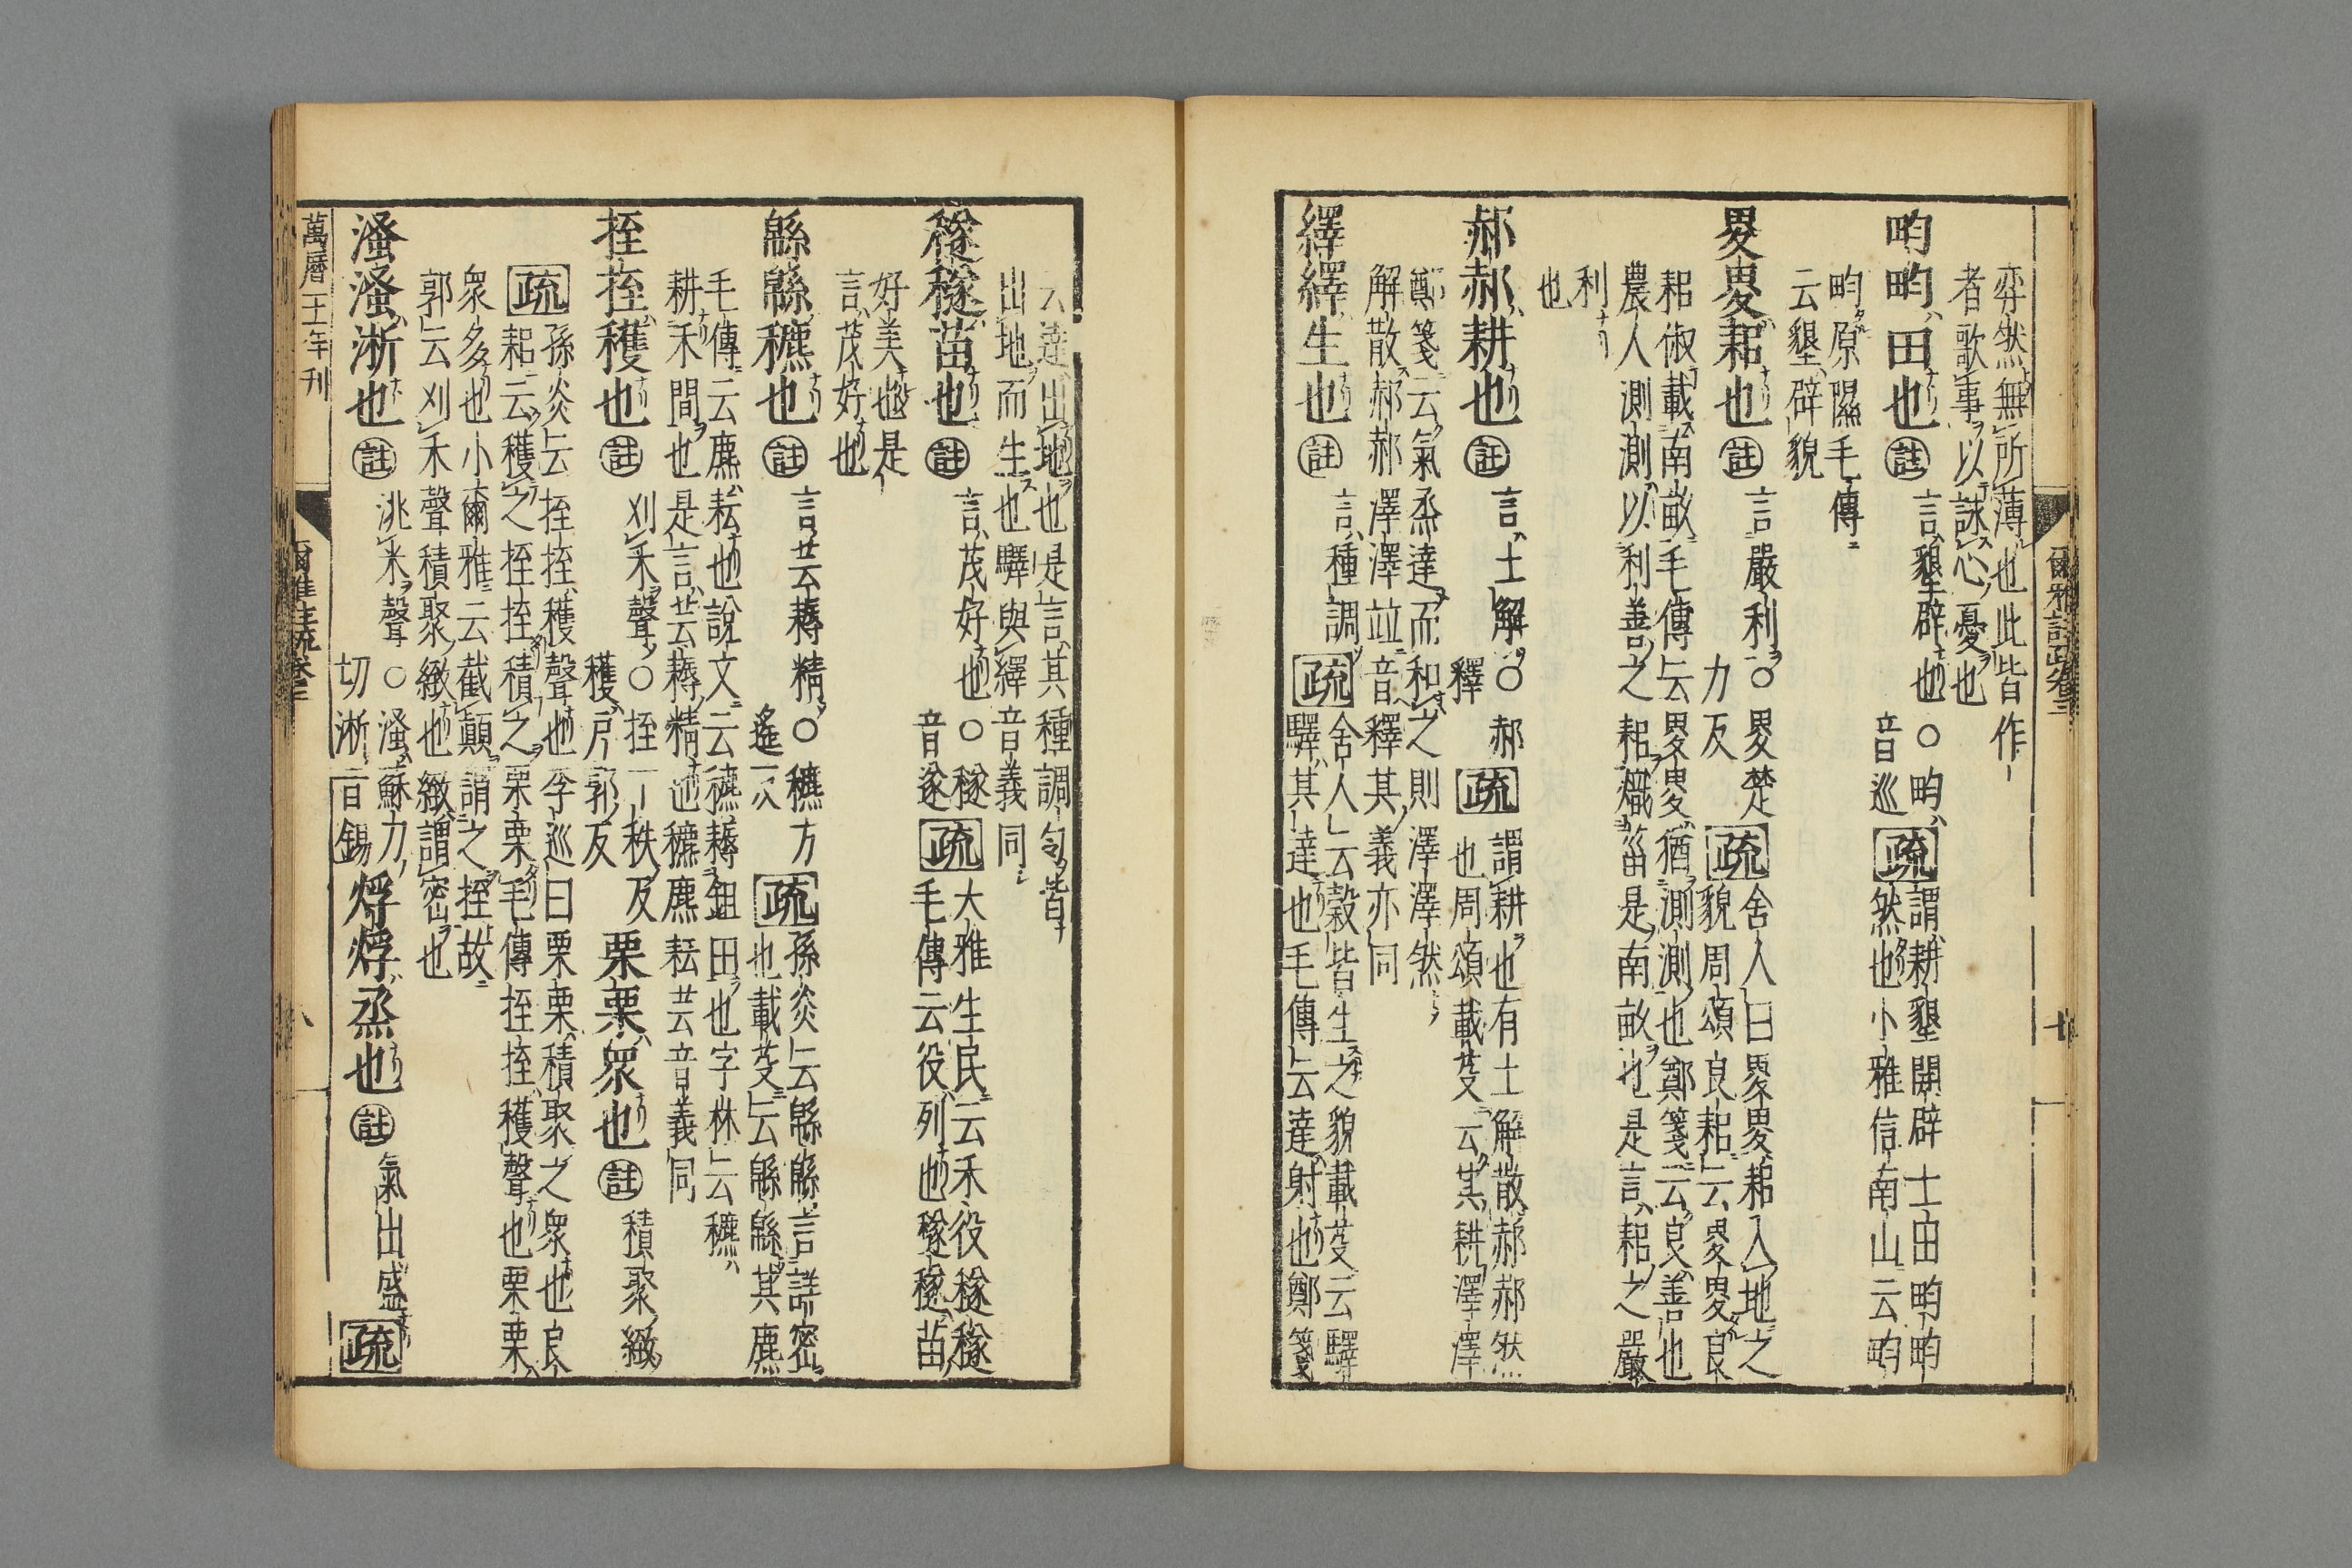 弈然無所薄也此皆作
者歌事以詠心憂也
畇畇田也註言墾辟也○畇音巡疏謂耕墾開辟土田畇畇
然也小雅信南山云畇
畇原隰毛傳
云墾辟貌
畟畟耜也註言嚴利○畟楚力反疏舍人曰畟畟耜入地之
貌周頌良耜云畟畟良
耜俶載南畝毛傳云畟畟猶測測也鄭箋云良善也
農人測測以利善之耜熾菑是南畝也是言耜之嚴
利
也
郝郝耕也註言土解○郝釋疏謂耕也有土解散郝郝然
也周頌載芟云其耕澤澤
鄭箋云氣烝達而和之則澤澤然
解散郝郝澤澤竝音釋其義亦同
繹繹生也註言種調疏舍人云穀皆生之貌載芟云驛
驛其達也毛傳云達射也鄭箋
云達出地也是言其種調勻皆
出地而生也驛與繹音義同
穟穟苗也註言茂好也○穟音遂疏大雅生民云禾役穟穟
毛傳云役列也穟穟苗
好美也是
言茂好也
緜緜穮也註言芸耨精○穮方遙反疏孫炎云緜緜言詳密
也載芟云緜緜其麃
毛傳云麃耘也說文云穮耨鉏田也字林云穮
耕禾間也是言芸耨精也穮麃耘芸音義同
挃挃穫也註刈禾聲○挃丁秩反穫戶郭反栗栗衆也註積聚緻
疏孫炎云挃挃穫聲也李巡曰栗栗積聚之衆也良
耜云穫之挃挃積之栗栗毛傳挃挃穫聲也栗栗
衆多也小爾雅云截顛謂之挃故
郭云刈禾聲積聚緻也緻謂密也
溞溞淅也註洮米聲○溞蘇刀切淅音錫烰烰烝也註氣出盛疏
爾雅註疏卷三
七
萬曆二十一年刊
爾雅註疏卷三
八